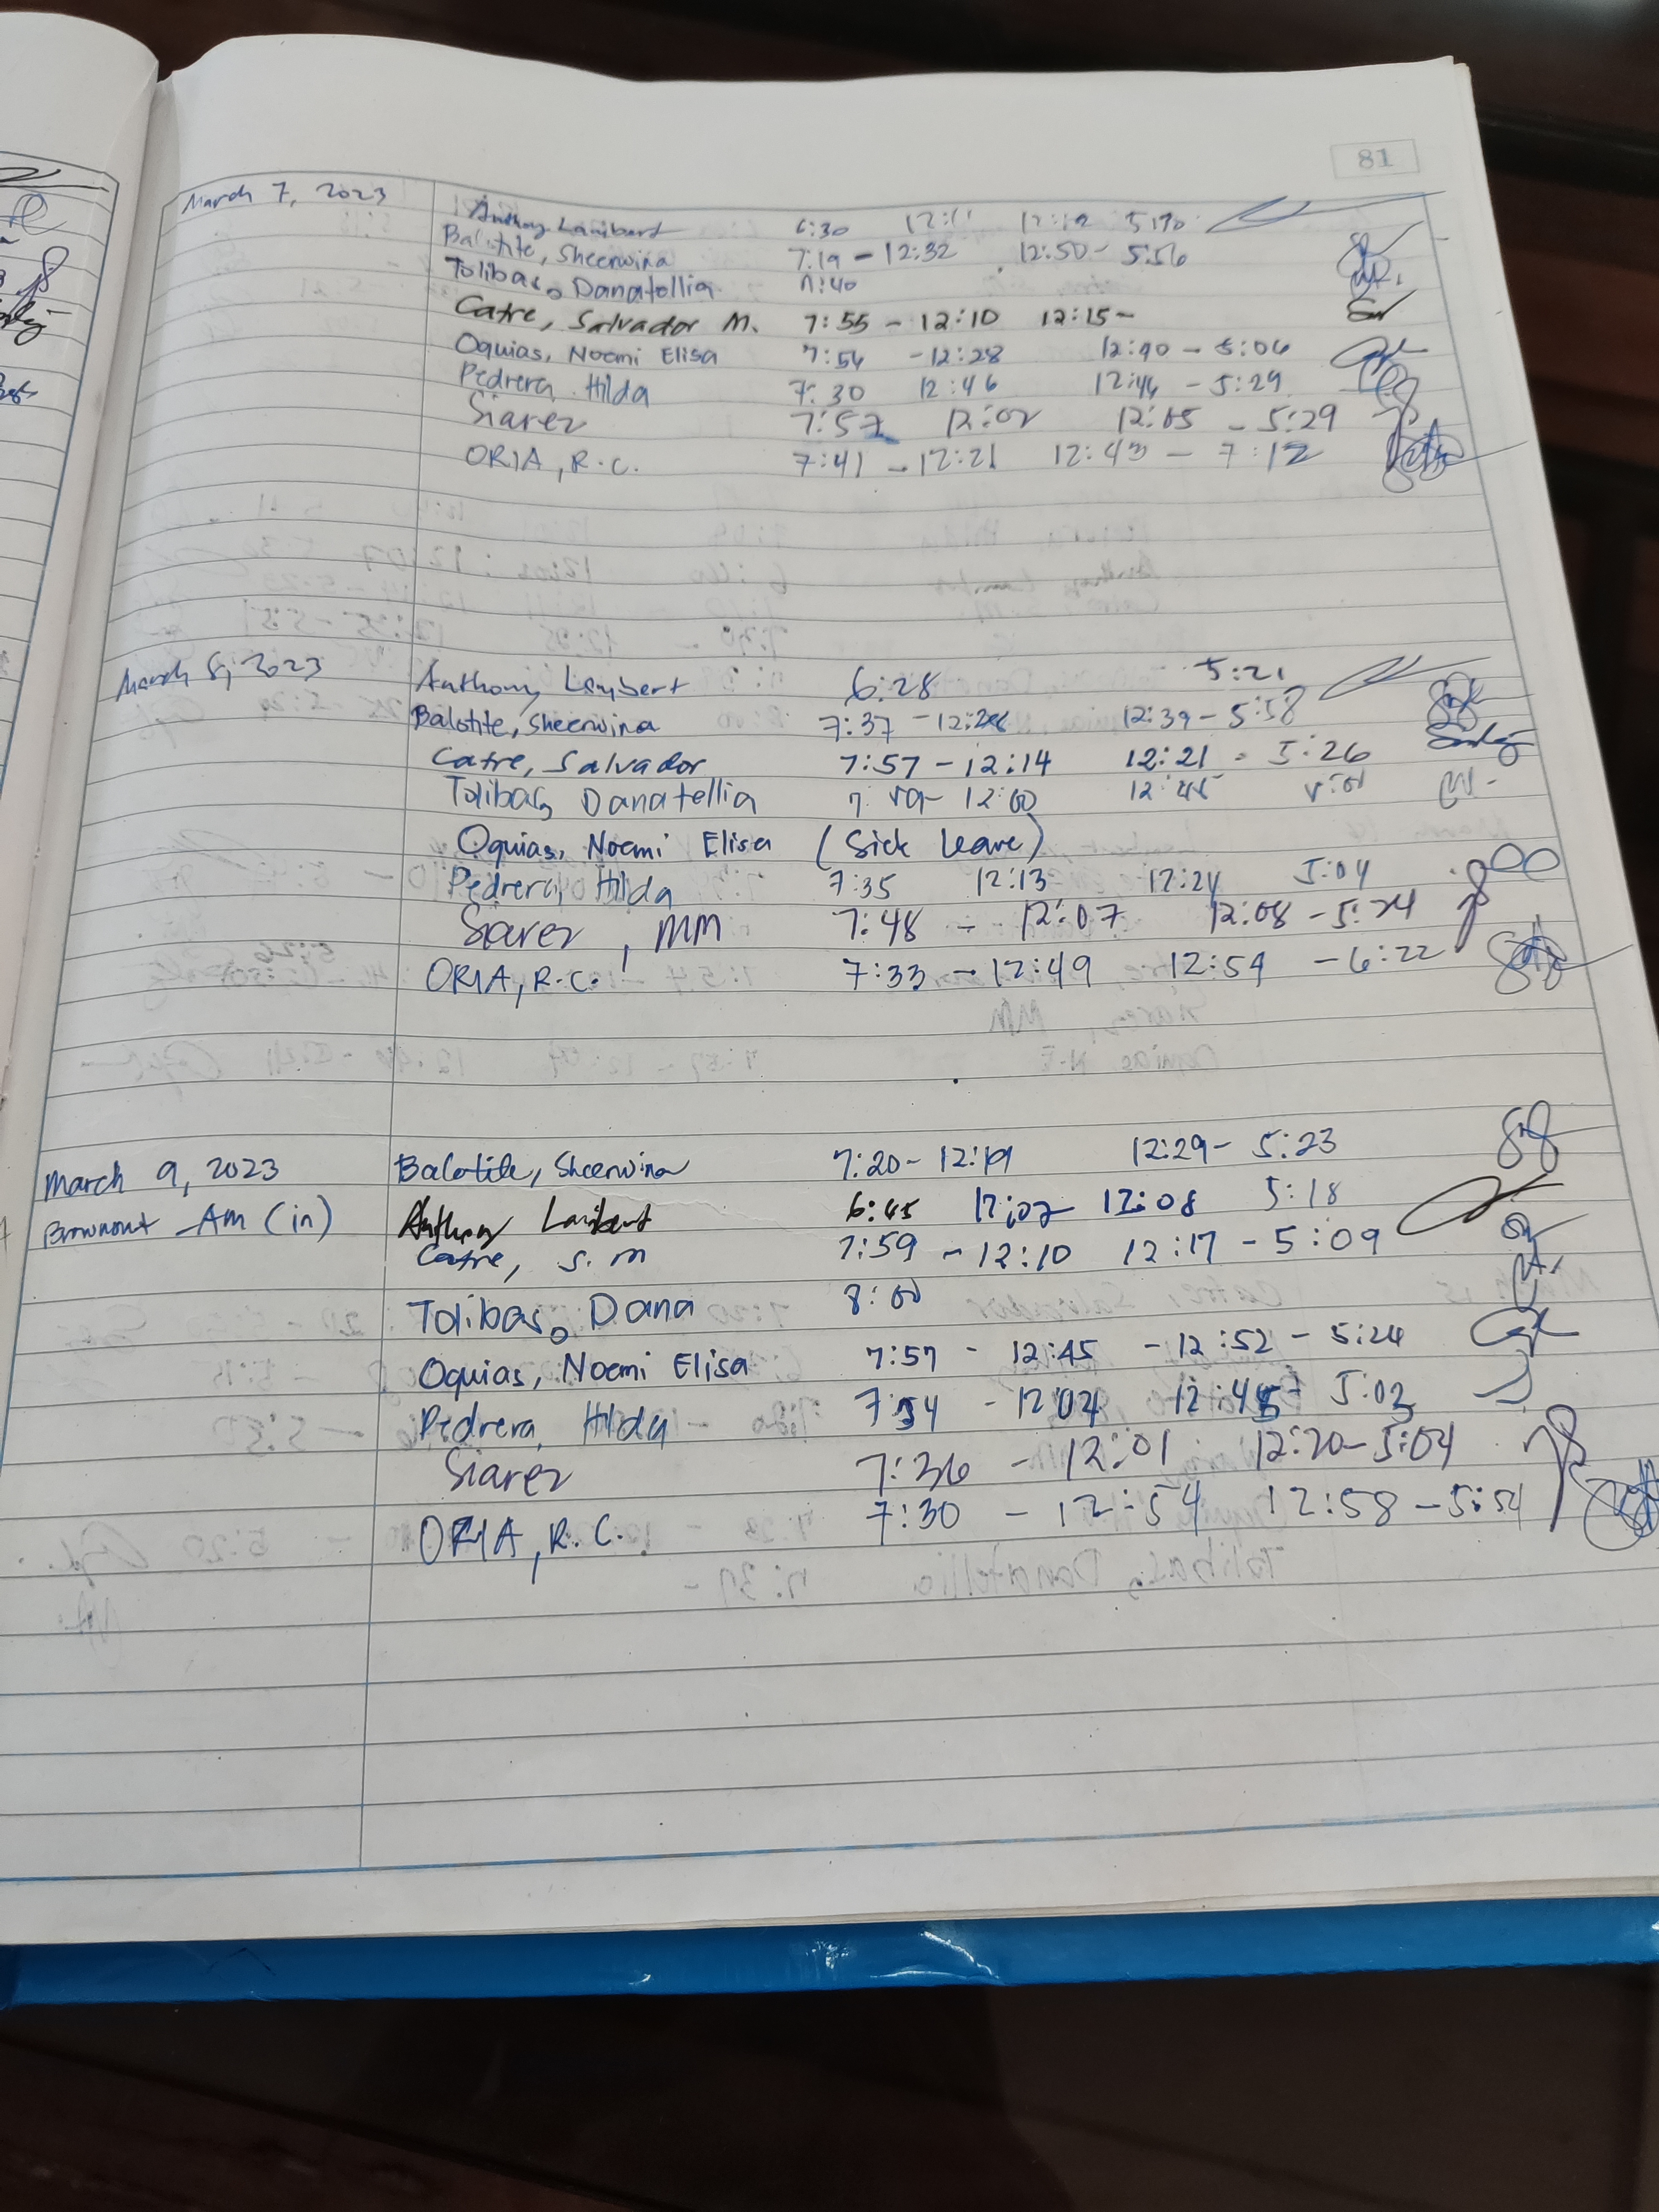 81
March 7, 2023
Anthony Lambert 6:30 12:11 12:12
Balotite, Sheerwina 7:19 - 12:32 12:50 - 5:56
Tolibas, Danatellia 7:40
Catre, Salvador M. 7:55 - 12:10 12:15-
Oquias, Noemi Elisa 7:54 - 12:28 12:40 - 5:06
Pedrera, Hilda 7:30 12:46 12:46 - 5:29
Siarez 7:57 12:02 12:05 - 5:29
ORIA, R.C. 7:41 - 12:21 12:43 - 7:12
March 8, 2023
Anthony Lambert 6:28 5:21
Balotite, Sheerwina 7:37 - 12:26 12:39 - 5:58
Catre, Salvador 7:57 - 12:14 12:21 - 5:26
Tolibas, Danatellia 12:00 12:45
Oquias, Noemi Elisa (Sick Leave)
Pedrera, Hilda 7:35 12:13 12:24 5:04
Siarez, MM 7:48 - 12:07 12:08 - 5:24
ORIA, R.C. 7:33 - 12:49 12:54 - 6:22
March 9, 2023
Brownout - AM (in)
Balotite, Sheerwina 7:20 - 12:19 12:29 - 5:23
Anthony Lambert 6:45 12:07 12:08 5:18
Catre, S.M 7:59 - 12:10 12:17 - 5:09
Tolibas, Dana 8:00
Oquias, Noemi Elisa 7:57 - 12:45 - 12:52 - 5:24
Pedrera, Hilda 7:54 - 12:04 12:45 - 5:03
Siarez 7:36 - 12:01 12:20 - 5:04
ORIA, R.C. 7:30 - 12:54 12:58 - 5:54